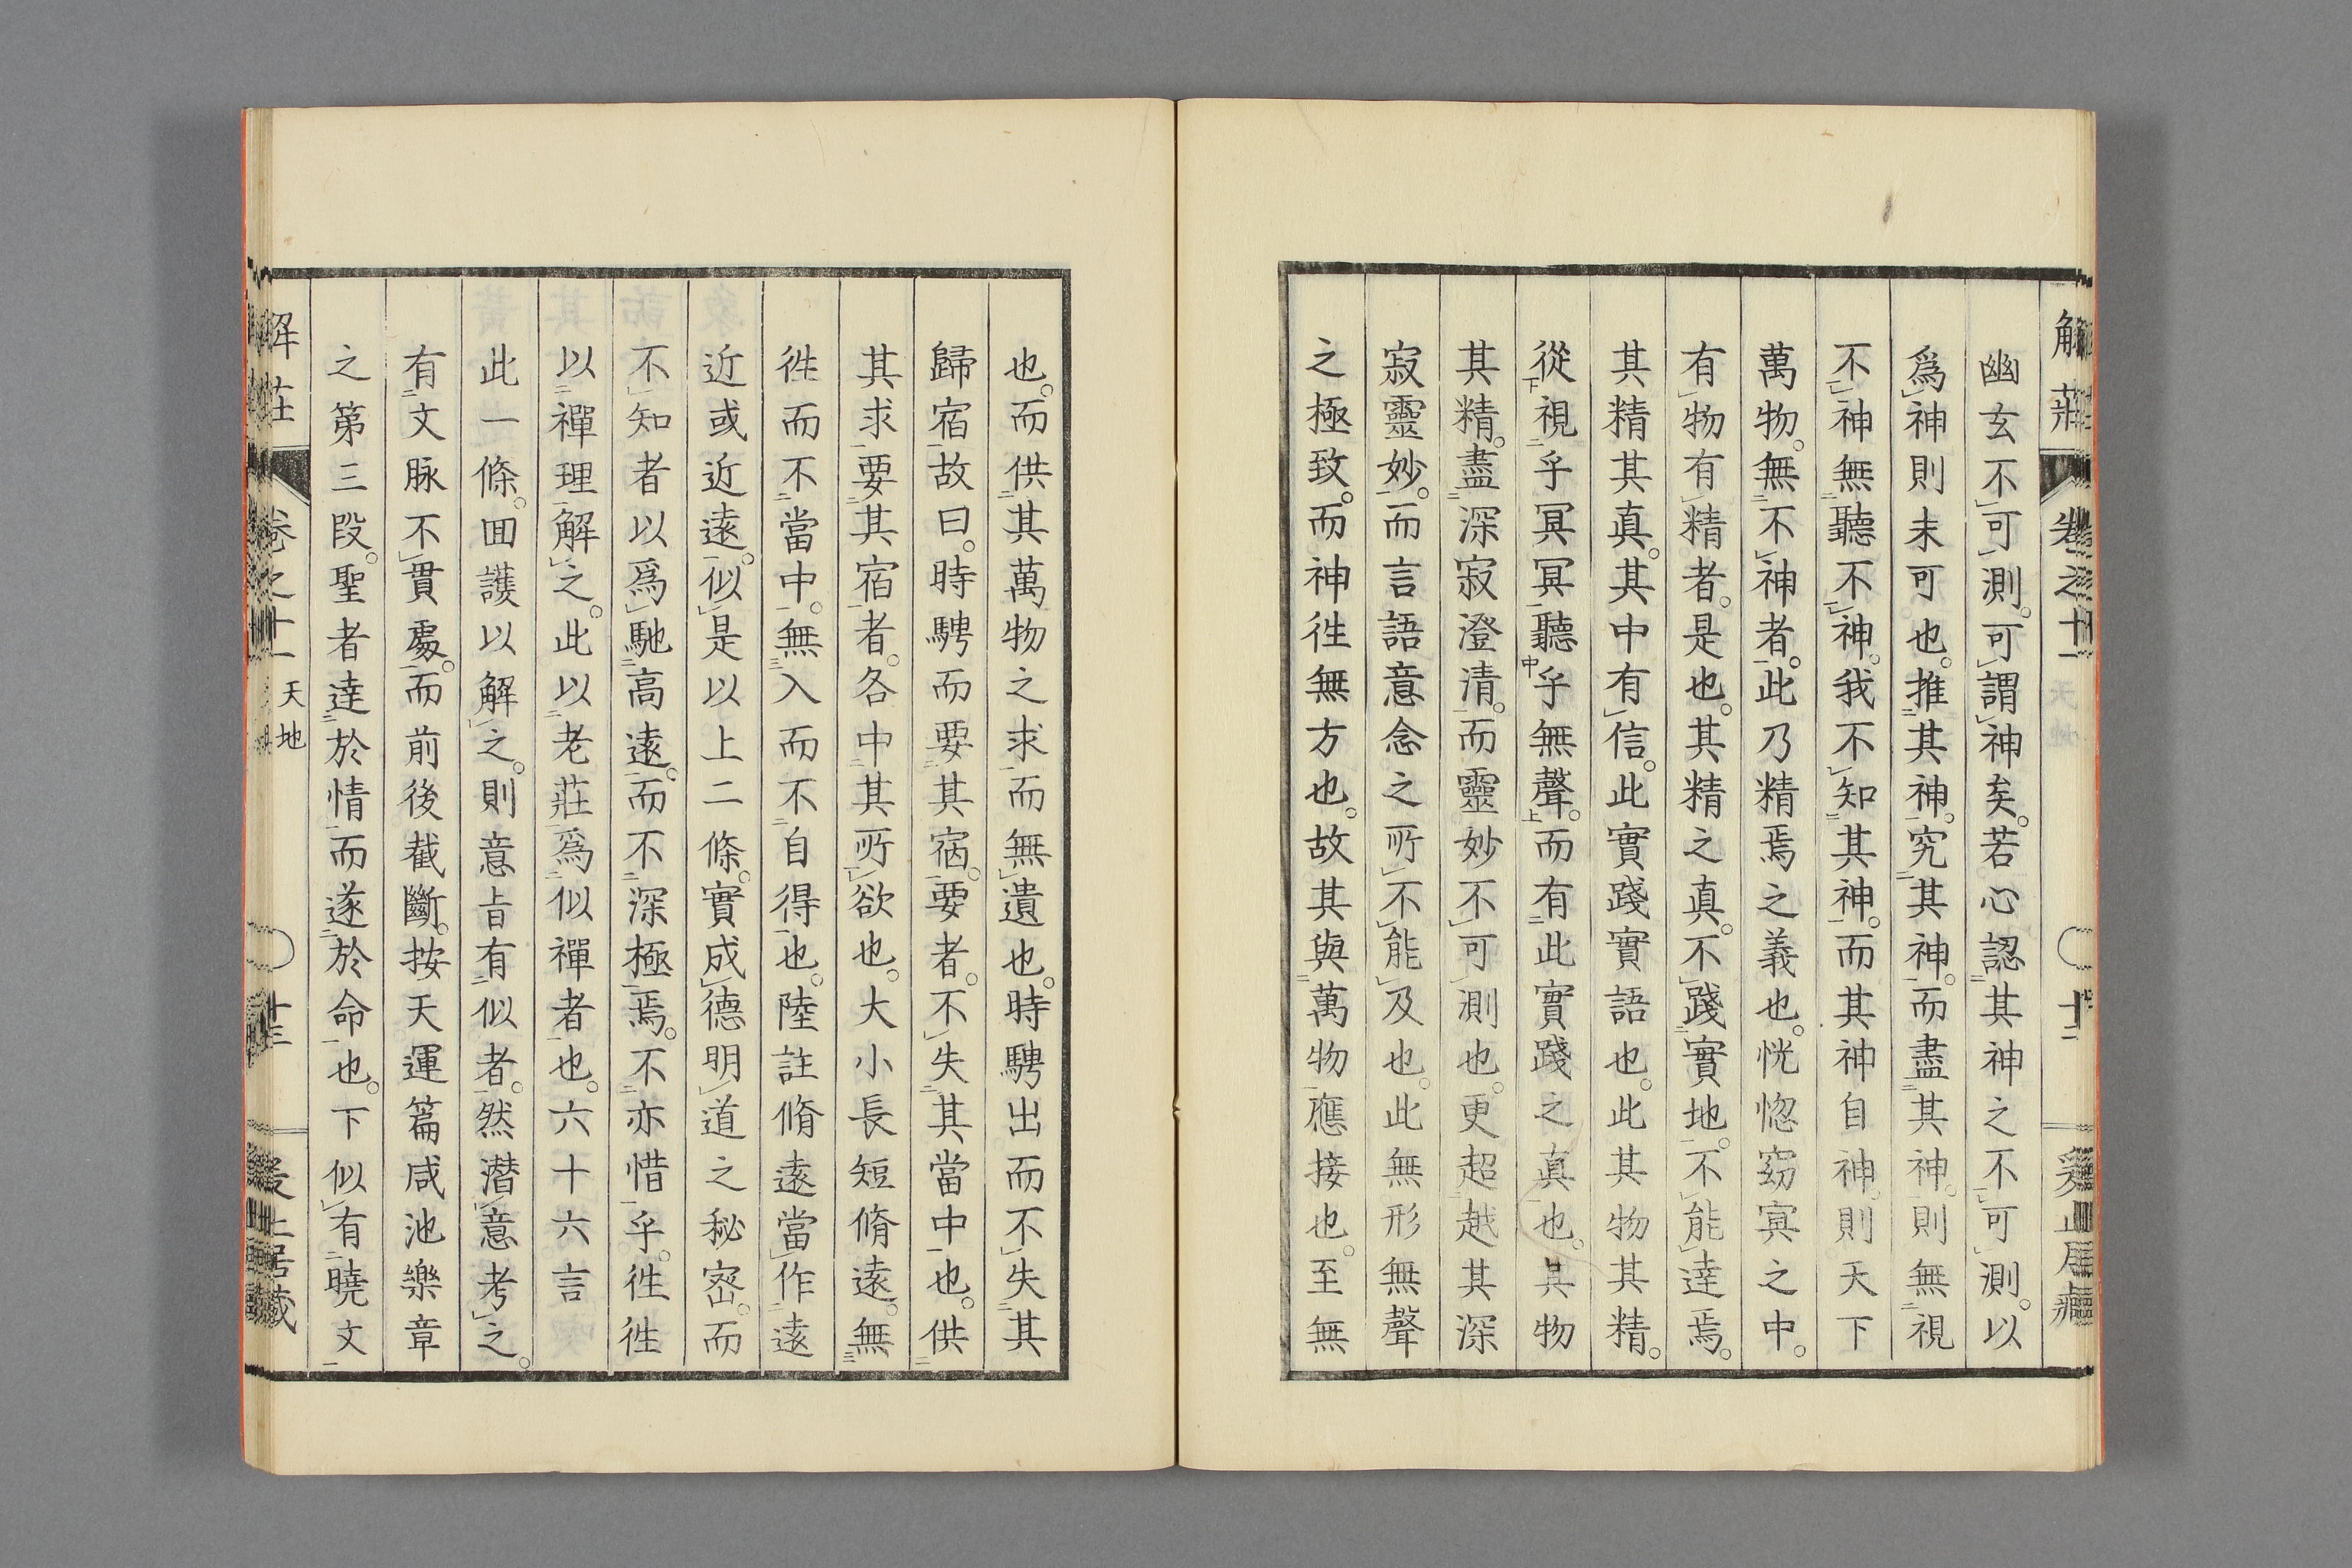 幽玄不可測可謂神矣若心認其神之不可測以
爲神則未可也推其神究其神而盡其神則無視
不神無聽不神我不知其神而其神自神則天下
萬物無不神者此乃精焉之義也恍惚窈冥之中
有物有精者是也其精之真不踐實地不能達焉
其精其真其中有信此實踐實語也此其物其精
從視乎冥冥聽乎無聲而有此實踐之真也其物
其精盡深寂澄清而靈妙不可測也更超越其深
寂靈妙而言語意念之所不能及也此無形無聲
之極致而神徃無方也故其與萬物應接也至無
也而供其萬物之求而無遺也時騁出而不失其
歸宿故曰時騁而要其宿要者不失其當中也供
其求要其宿者各中其所欲也大小長短脩遠無
徃而不當中無入而不自得也陸註脩遠當作遠
近或近遠似是以上二條實成德明道之秘密而
不知者以爲馳高遠而不深極焉不亦惜乎徃徃
以禪理解之此以老莊爲似禪者也六十六言
此一條囬護以解之則意旨有似者然潛意考之
有文脉不貫處而前後截斷按天運篇咸池樂章
之第三段聖者達於情而遂於命也下似有曉文
解莊
卷之十一 天地